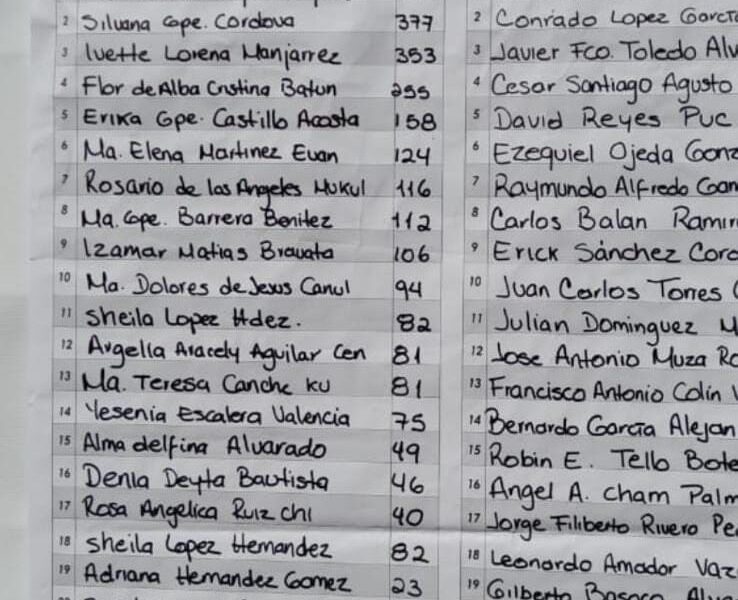 2 Silvana Gpe. Cordova 377
3 Ivette Lorena Manjarrez 353
4 Flor de Alba Cristina Batun 255
5 Erika Gpe. Castillo Acosta 158
6 Ma. Elena Martinez Euan 124
7 Rosario de los Angeles Mukul 116
8 Ma. Gpe. Barrera Benitez 112
9 Izamar Matias Bravata 106
10 Ma. Dolores de Jesus Canul 94
11 Sheila Lopez Hdez. 82
12 Argelia Aracely Aguilar Cen 81
13 Ma. Teresa Canche Ku 81
14 Yesenia Escalera Valencia 75
15 Alma delfina Alvarado 49
16 Denia Deyta Bautista 46
17 Rosa Angelica Ruiz Chi 40
18 Sheila Lopez Hernandez 82
19 Adriana Hernandez Gomez 23
2 Conrado Lopez Garcia
3 Javier Fco. Toledo Alv
4 Cesar Santiago Agusto
5 David Reyes Puc
6 Ezequiel Ojeda Gonz
7 Raymundo Alfredo
8 Carlos Balan Ramir
9 Erick Sánchez Cord
10 Juan Carlos Torres
11 Julian Dominguez M
12 Jose Antonio Muza Ro
13 Francisco Antonio Colin V
14 Bernardo Garcia Alejan
15 Robin E. Tello Bote
16 Angel A. Cham Palm
17 Jorge Filiberto Rivero Pe
18 Leonardo Amador Vaz
19 Gilberto